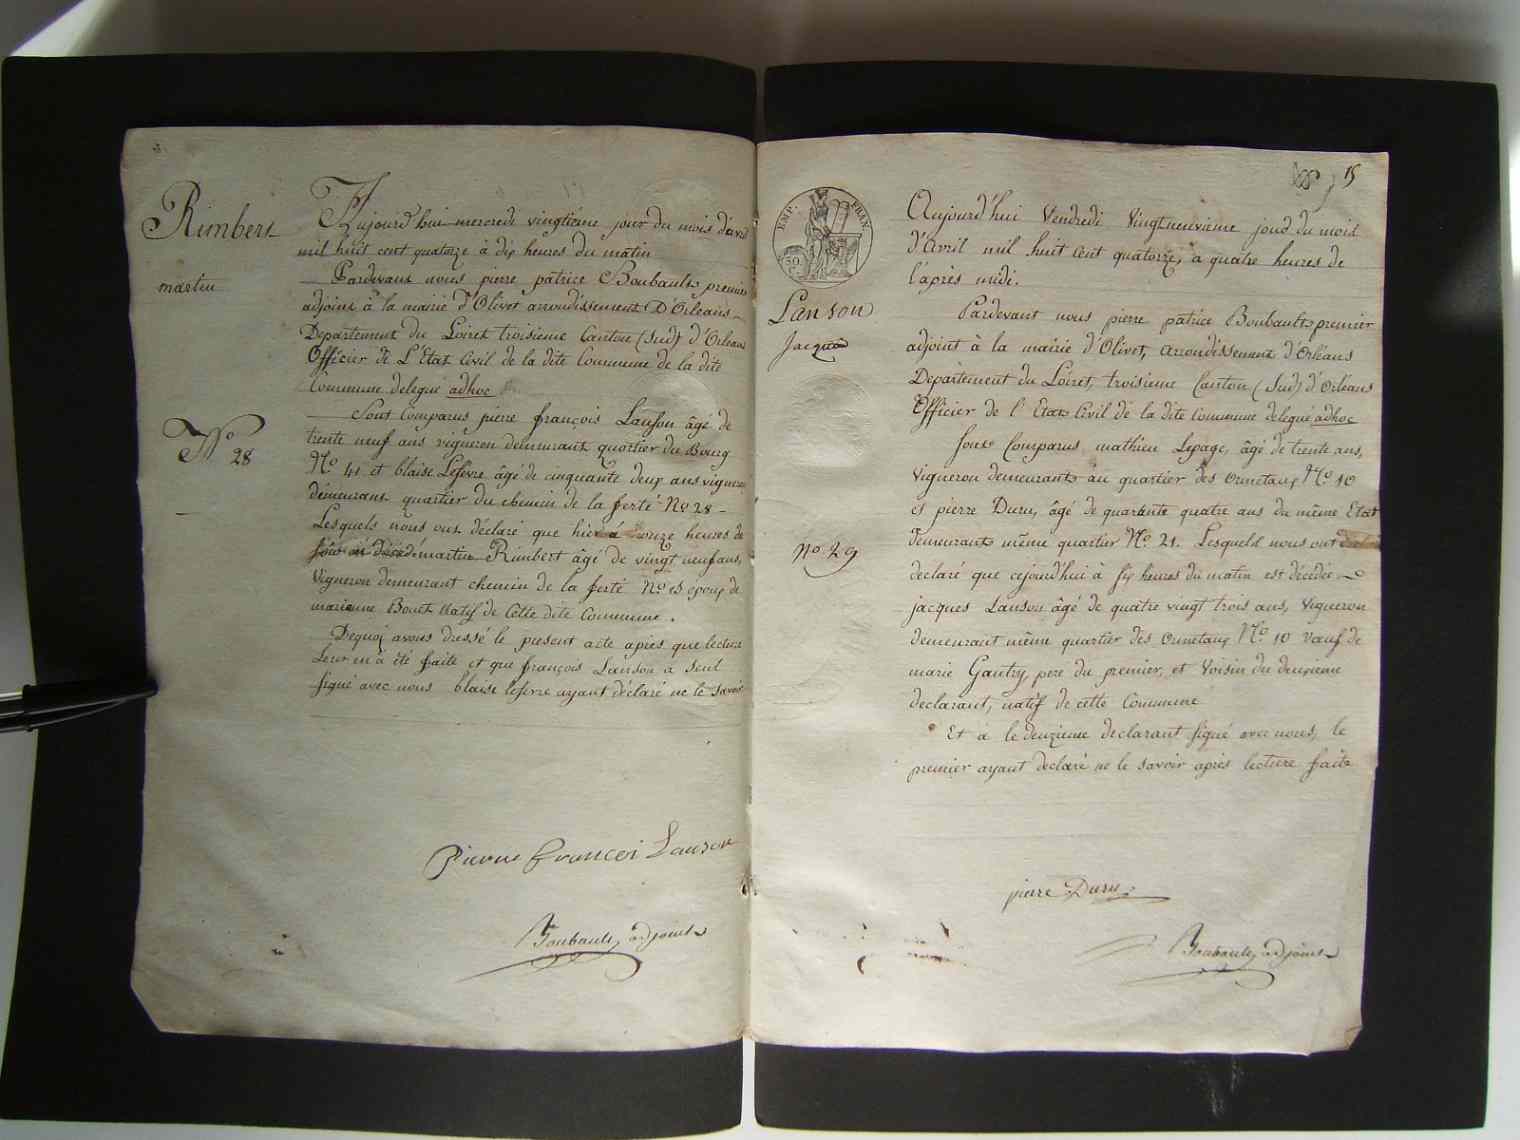 Rimbert
martin
N° 28
Aujourd'hui mercredi vingtième jour du mois d'avril
mil huit cent quatorze à dix heures du matin
Pardevant nous pierre patrice Boubault premier
adjoint à la mairie d'Olivet arrondissement D'Orleans
Departement du Loiret troisieme Canton (Sud) d'Orleans
Officier de L'Etat Civil de la dite Commune de la dite
Commune delegué adhoc
Sont Comparus pierre françois Lanson âgé de
trente neuf ans vigneron demeurant quartier du Bourg
N° 41 et blaise Lefevre âgé de cinquante deux ans vigneron
demeurant quartier du chemin de la ferté N° 28
Lesquels nous ont déclaré que hier à onze heures de
soir est décédé martin Rimbert âgé de vingt neuf ans,
Vigneron demeurant chemin de la ferté N° époux de
marianne Bouet Natif de Cette dite Commune.
Dequoi avons dressé le present acte après que lecture
Leur en a été faite et que françois Lanson a seul
signé avec nous blaise lefevre ayant déclaré ne le savoir
Pierre francoi Lanson
Boubault, adjoint
15
EMP. FRAN.
50 C.
Lanson
Jacques
N° 29
Aujourd'hui Vendredi Vingtneuvieme jour du mois
d'avril mil huit Cent quatorze, à quatre heures de
l'après midi.
Pardevant nous pierre patrice Boubault premier
adjoint à la mairie d'Olivet, arrondissement d'Orléans
Departement du Loiret, troisieme Canton (Sud) d'Orléans
Officier de l'Etat Civil de la dite Commune delegué adhoc
Sont Comparus mathieu Lepage, âgé de trente ans,
Vigneron demeurant au quartier des Ormetaux N° 10
et pierre Duru, âgé de quarante quatre ans du même Etat
demeurant même quartier N° 21. Lesquels nous ont
declaré que cejourd'hui à six heures du matin est décédé
jacques Lanson âgé de quatre vingt trois ans, Vigneron
demeurant même quartier des Ormetaux N° 10 Vœuf de
marie Gautry, pere du premier, et Voisin du deuxieme
declarant, natif de cette Commune
Et à le deuxieme declarant signé avec nous, le
premier ayant declaré ne le savoir après lecture faite
pierre Duru
Boubault, adjoint